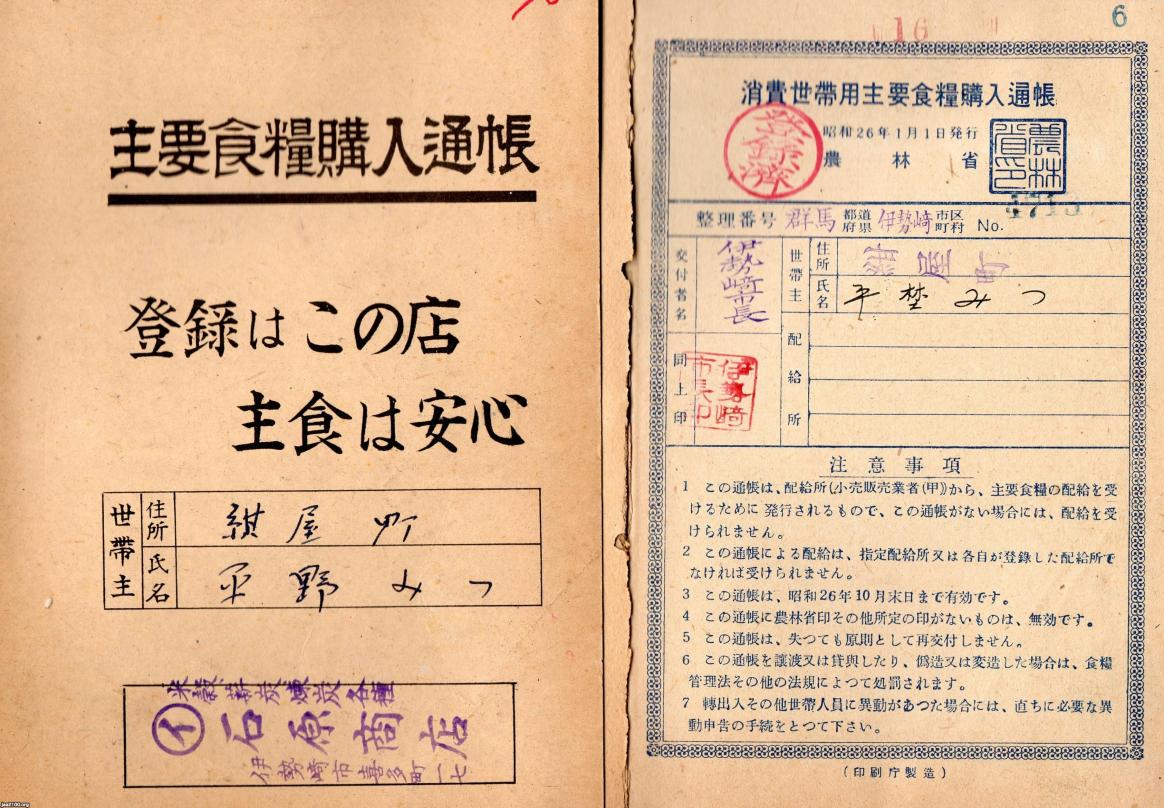 主要食糧購入通帳
登録はこの店
主食は安心
世帶主
住所 紺屋町
氏名 平野みつ
米穀薪炭煉炭各種
イ 石原商店
伊勢崎市喜多町一七
6
16
消費世帶用主要食糧購入通帳
登録済
昭和26年1月1日発行
農林省
農林省印
整理番号 群馬 都道府県 伊勢崎 市区町村 No. 4713
交付者名 伊勢崎市長
同上印 伊勢崎市長印
世帶主
住所 紺屋町
氏名 平埜みつ
配給所
注意事項
1 この通帳は、配給所(小売販売業者(甲))から、主要食糧の配給を受
けるために発行されるもので、この通帳がない場合には、配給を受
けられません。
2 この通帳による配給は、指定配給所又は各自が登録した配給所で
なければ受けられません。
3 この通帳は、昭和26年10月末日まで有効です。
4 この通帳に農林省印その他所定の印がないものは、無効です。
5 この通帳は、失つても原則として再交付しません。
6 この通帳を讓渡又は貸與したり、僞造又は変造した場合は、食糧
管理法その他の法規によつて処罰されます。
7 轉出入その他世帶人員に異動があつた場合には、直ちに必要な異
動申告の手続をとつて下さい。
(印刷庁製造)
jaa2100.org